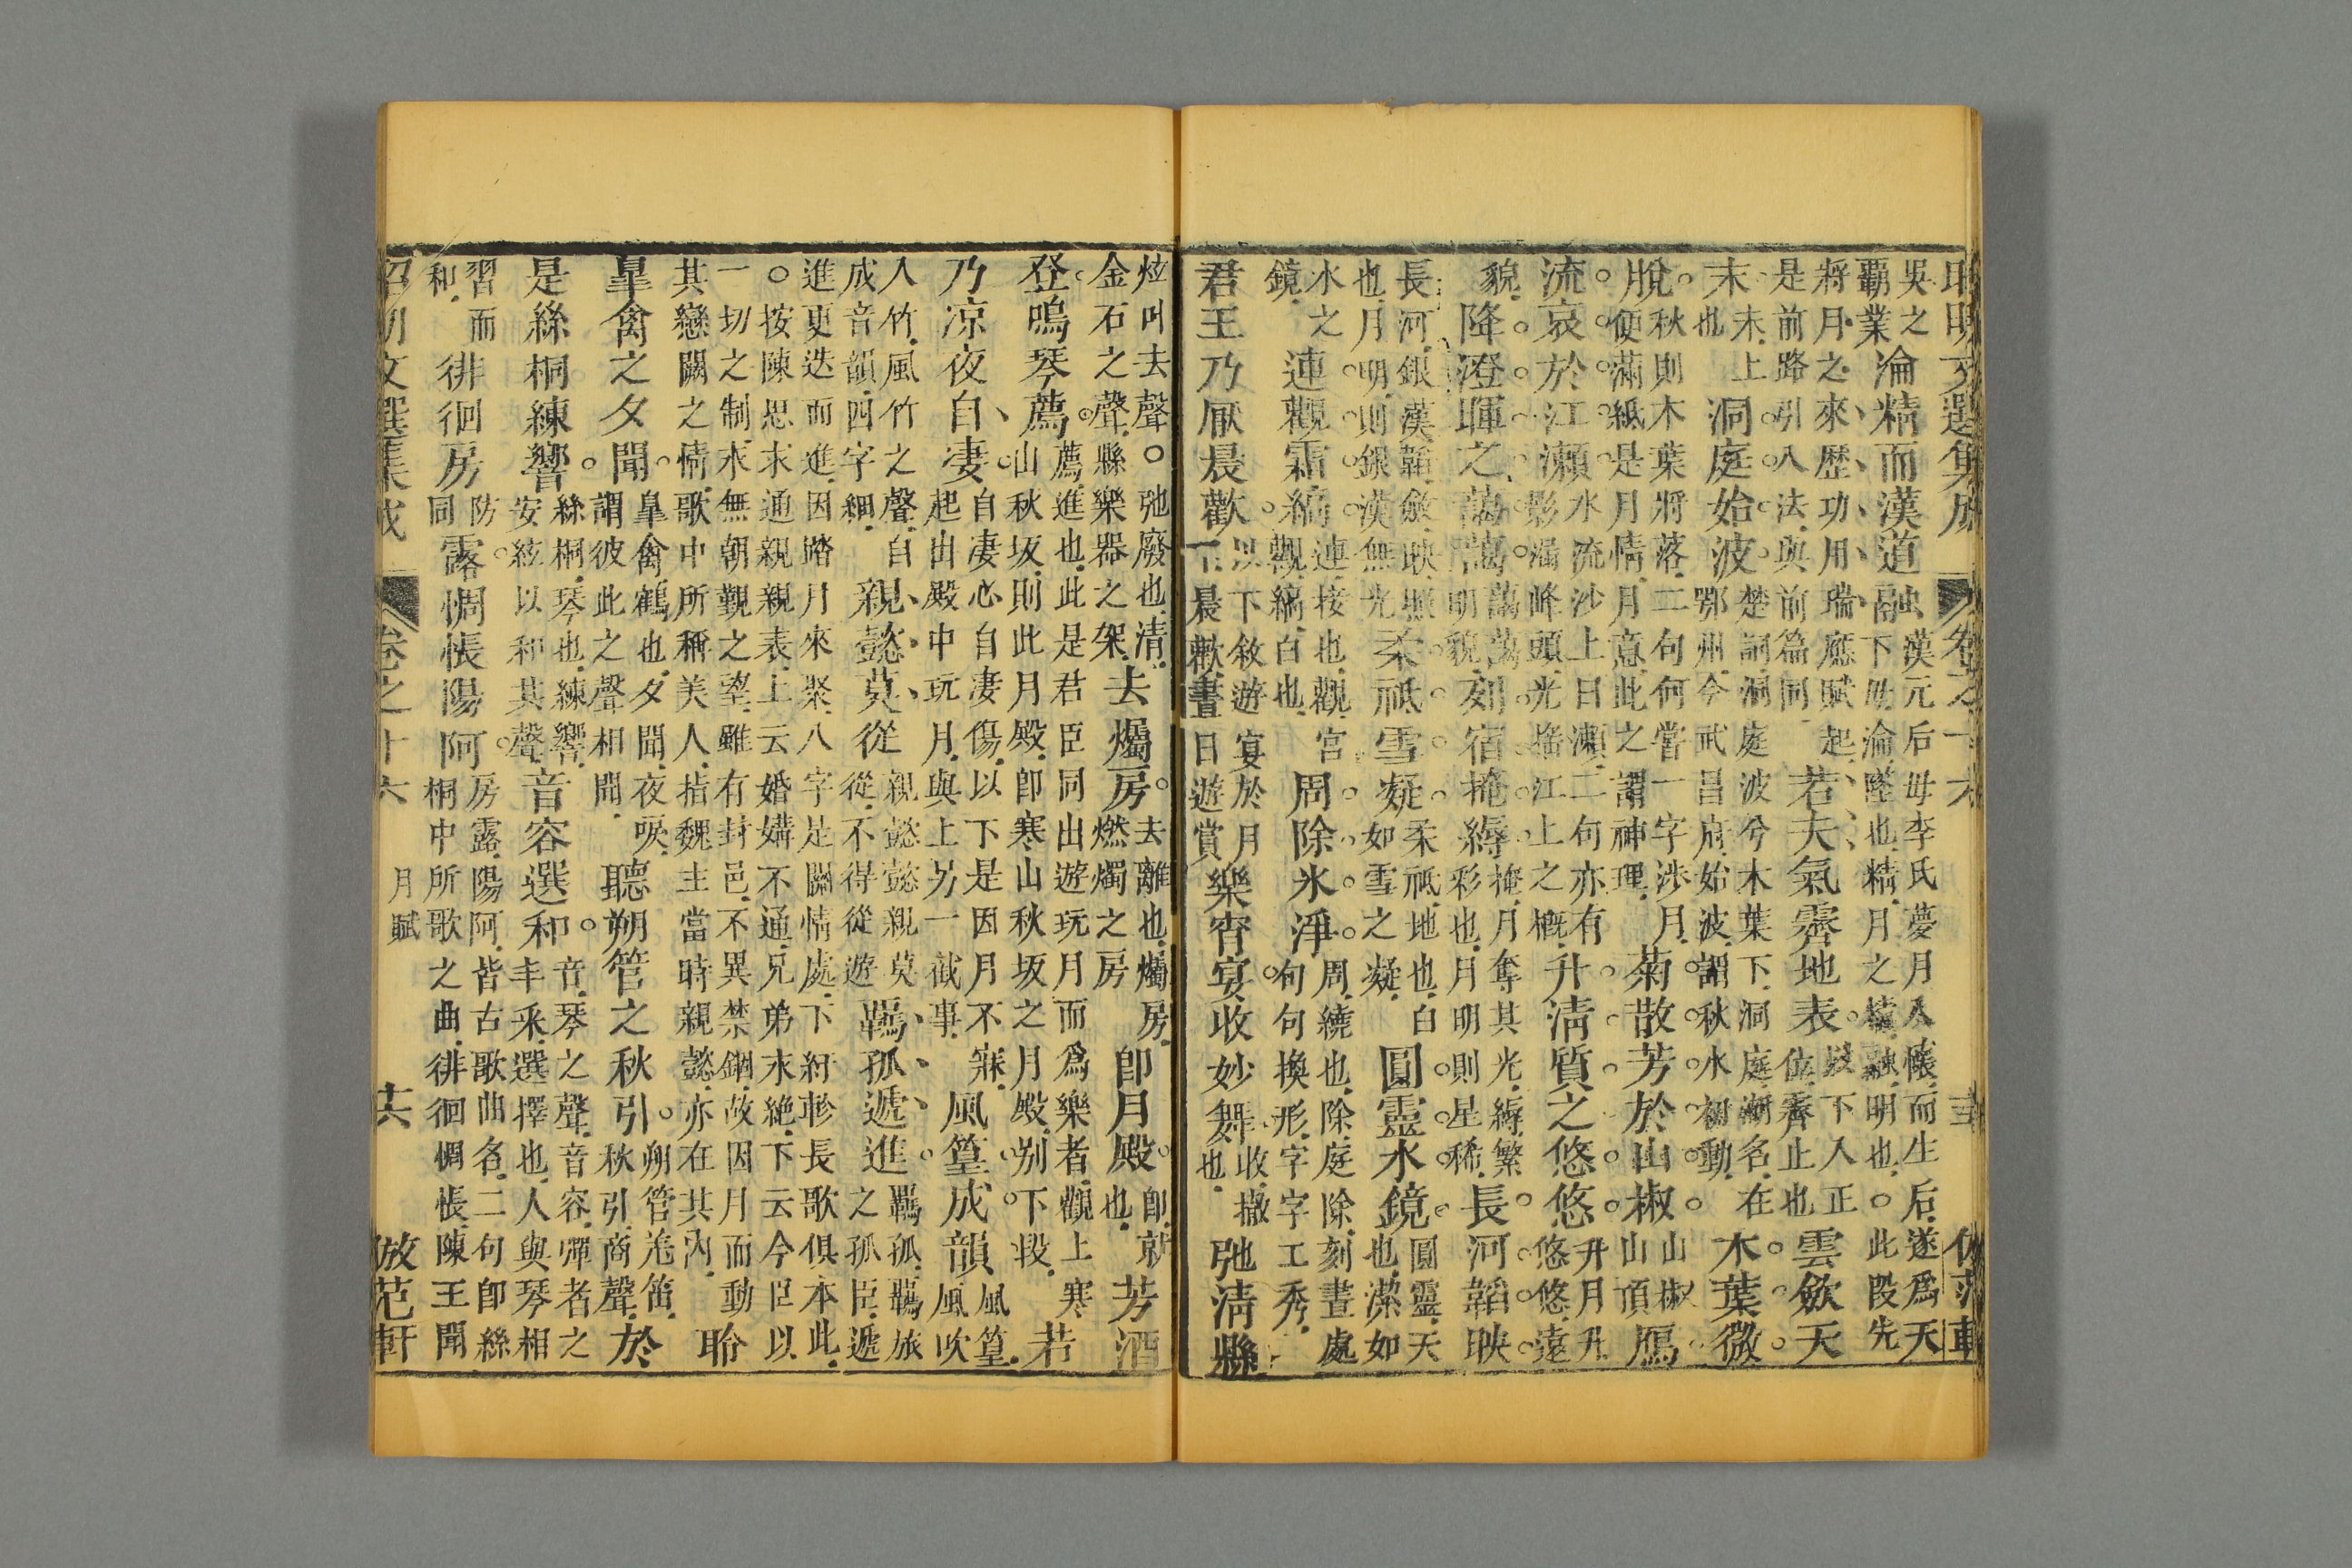 昭明文選集成 卷之十六 倣范軒
吳之
霸業
淪精而漢道融
漢元后毋李氏夢月入懷而生后遂爲天
下毋淪墜也精月之精融明也○此段先
將月之來歷功用瑞應賦起
是前路引入法與前篇同
若夫氣霽地表
以下入正
位霽止也
雲斂天
末
末上
也
洞庭始波
楚詞洞庭波兮木葉下洞庭湖名在
鄂州今武昌府始波謂秋水初動
木葉微
脫
秋則木葉將落二句何嘗一字涉月
便滿紙是月情月意此之謂神理
菊散芳於山椒
山椒
山頂
鴈
流哀於江瀨
水流沙上曰瀨二句亦有
影濁峰頭光搖江上之概
升清質之悠悠
升月升
悠悠遠
貌
降澄暉之藹藹
藹藹
明貌
列宿掩縟
掩月奪其光縟繁
彩也月明則星稀
長河韜映
長河銀漢韜斂映照
也月明則銀漢無光
柔祇雪凝
柔祇地也白
如雪之凝
圓靈水鏡
圓靈天
也潔如
水之
鏡
連觀霜縞
連接也觀宮
觀縞白也
周除氷淨
周繞也除庭除刻畫處
句句換形字字工秀
君王乃厭晨歡
以下敘遊宴於月
下晨歡晝日遊賞
樂宵宴收妙舞
收撤
也
弛淸縣
炫叫去聲○弛廢也清
金石之聲縣樂器之架
去燭房
去離也燭房
燃燭之房
卽月殿
卽就
也
芳酒
登鳴琴薦
薦進也此是君臣同出遊玩月而爲樂者觀上寒
山秋坂則此月殿卽寒山秋坂之月殿别下段
若
乃凉夜自凄
自凄心自凄傷以下是因月不寐
起由殿中玩月與上另一截事
風篁成韻
風篁
風吹
入竹風竹之聲自
成音韻四字細
親懿莫從
親懿懿親莫
從不得從遊
羈孤遞進
羈孤羈旅
之孤臣遞
進更迭而進因踏月來聚八字是關情處下紆軫長歌俱本此
○按陳思求通親親表上云婚媾不通兄弟末絶下云今臣以
一切之制永無朝覲之望雖有封邑不異禁錮故因月而動
其戀闕之情歌中所稱美人指魏主當時親懿亦在其內
聆
臯禽之夕聞
臯禽鶴也夕聞夜唳
謂彼此之聲相聞
聽朔管之秋引
朔管羌笛
秋引商聲
於
是絲桐練響
絲桐琴也練響
安絃以和其聲
音容選和
音琴之聲音容彈者之
丰采選擇也人與琴相
習而
和
徘徊房
防
同
露惆悵陽阿
房露陽阿皆古歌曲名二句卽絲
桐中所歌之曲徘徊惆悵陳王聞
昭明文選集成 卷之十六 月賦 十六 倣范軒